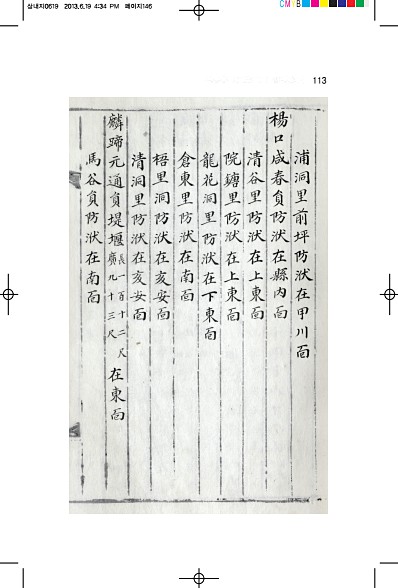 삼내지0619 2013.6.19 4:34 PM 페이지146
CMYB
113
浦洞里前坪防洑在甲川面
楊口咸春負防洑在縣內面
清谷里防洑在上東面
院塘里防洑在上東面
龍花洞里防洑在下東面
倉東里防洑在南面
梧里洞防洑在亥安面
清洞里防洑在亥安面
麟蹄元通負堤堰長一百十二尺廣九十三尺在東面
馬谷負防洑在南面